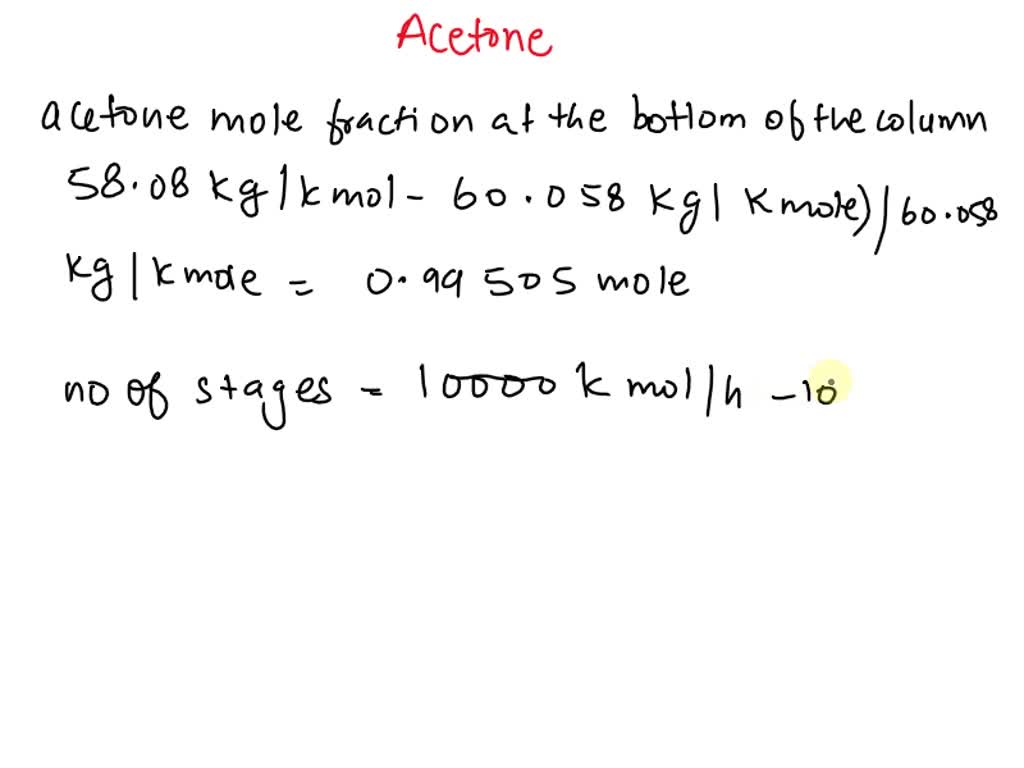 Acetone
acetone mole fraction at the bottom of the column
58.08 kg/kmol - 60.058 kg/kmole)/60.058
kg/kmole = 0.99505 mole
no of stages = 10000 kmol/h -10